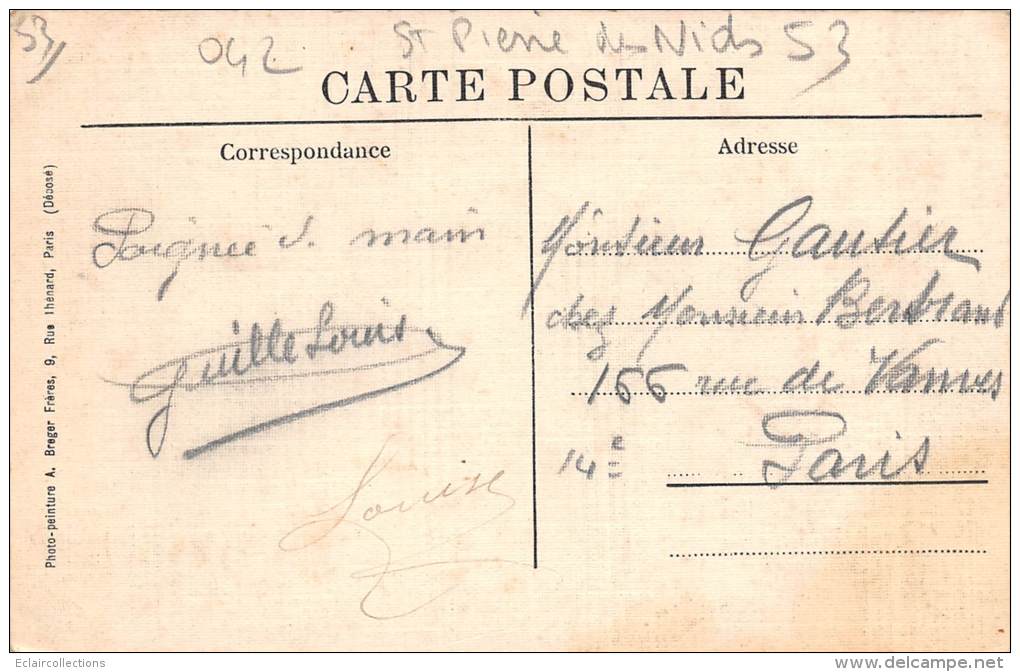 53
042
St Pierre des Nids 53
CARTE POSTALE
Correspondance
Adresse
Poignée d. main
Louis
Louise
Monsieur Gautier
chez Monsieur Bertrand
166 rue de Vanves
14e Paris
Photo-peinture A. Breger Frères, 9, Rue Thénard, Paris (Déposé)
Eclaircollections
www.delcampe.net